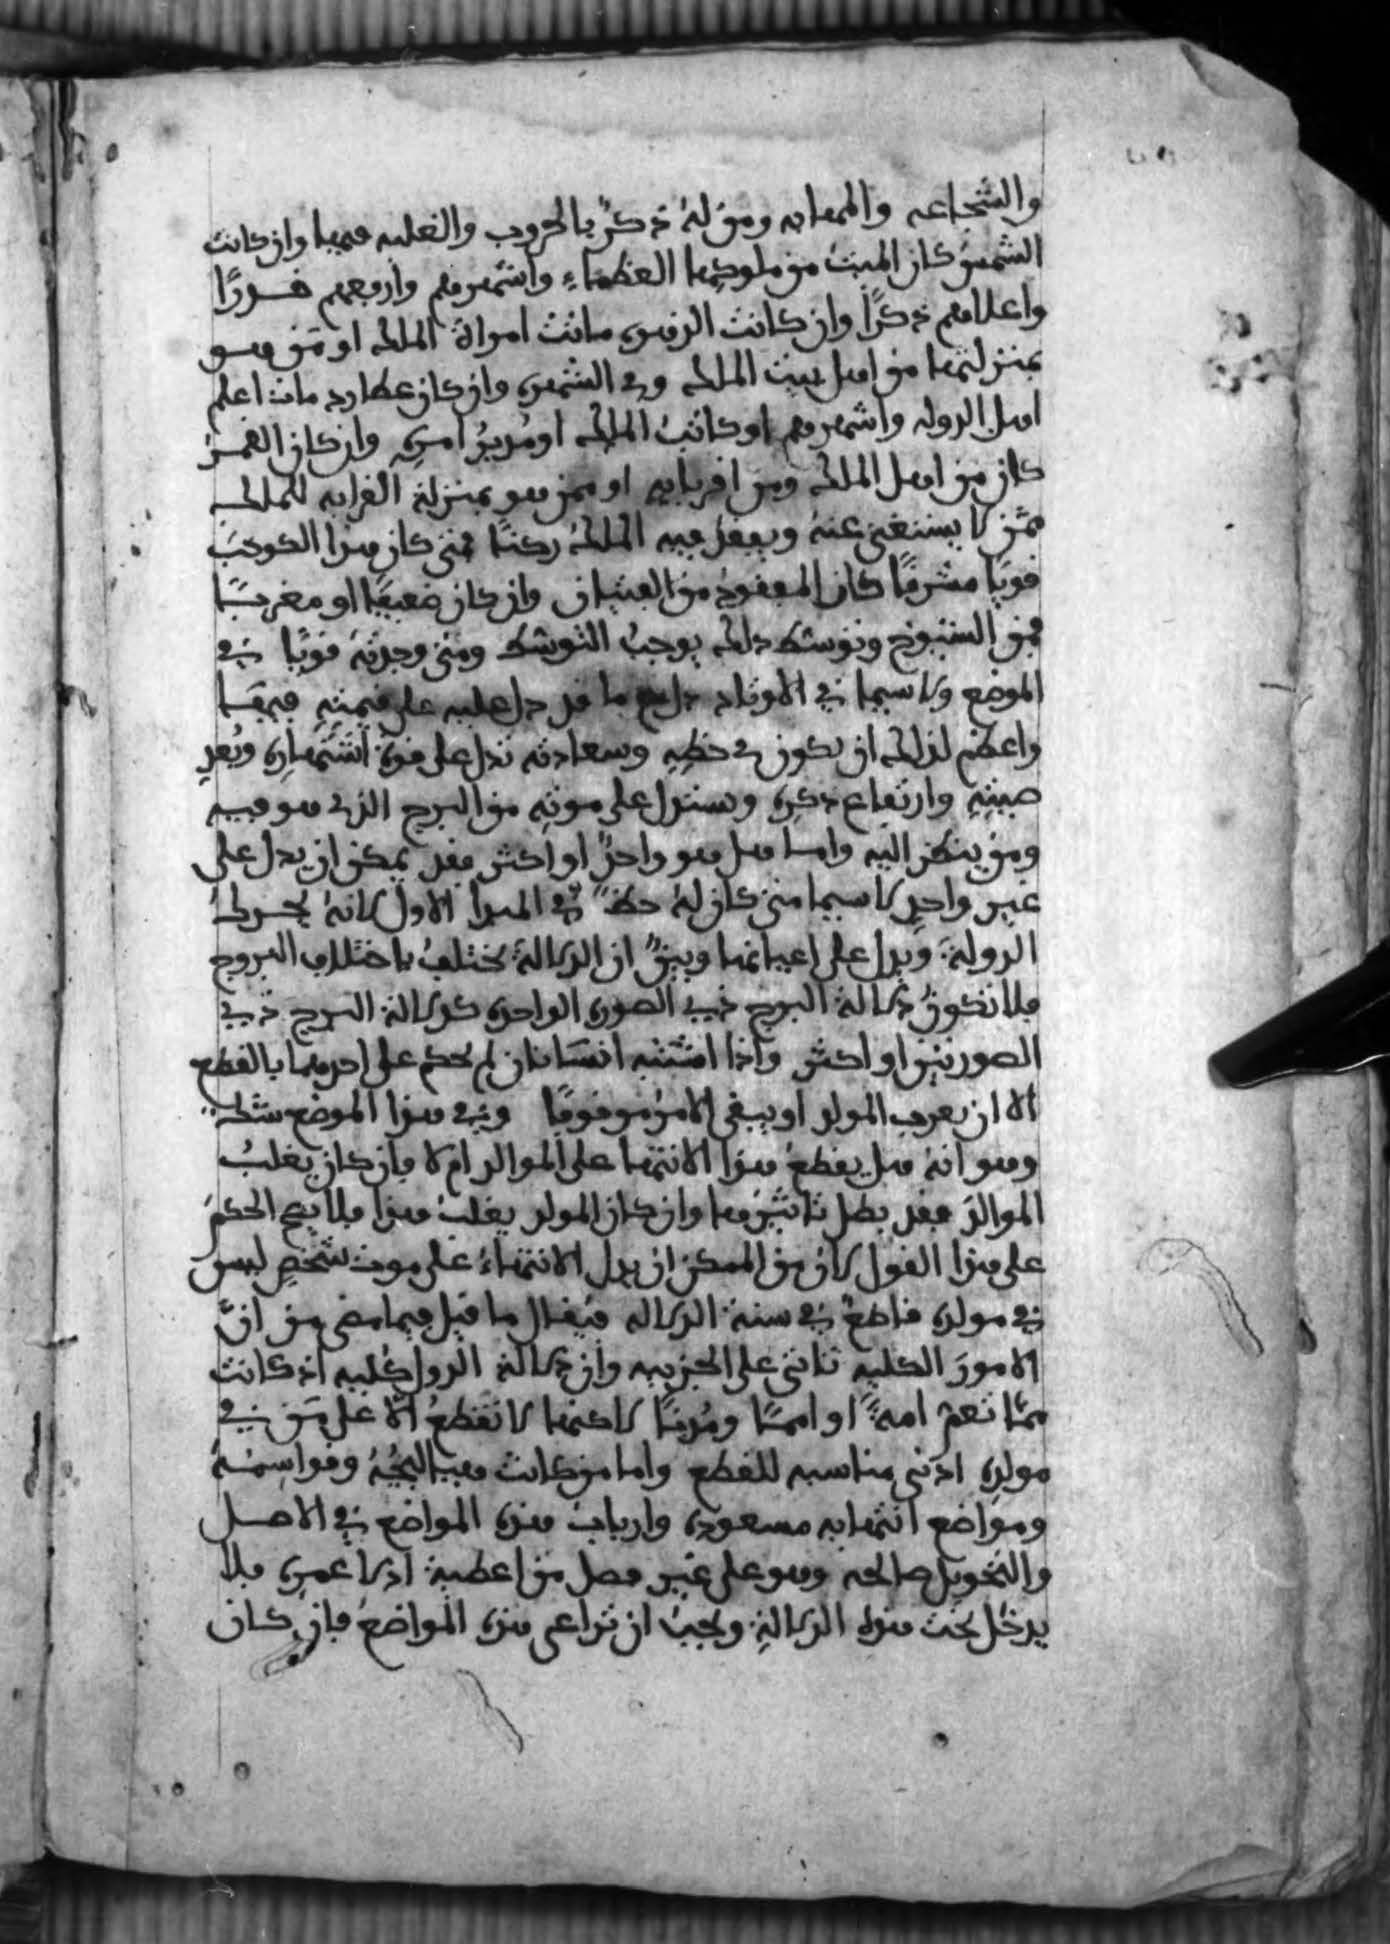 والشجاعه والمهابه ومن له ذكرٌ بالحروب والغلبه فيها وان كانت
الشمس كان الميت من ملوكها العظماء واشهرهم وارفعهم قدرًا
واعلاهم ذكرًا وان كانت الزهره ماتت امراة الملك او من هو
بمنزلتها من اهل بيت الملك وفي الشمس وان كان عطارد مات اعلم
اهل الدوله واشهرهم او كاتب الملك او مُدبرُ امره وان كان القمر
كان من اهل الملك ومن اقربايه او ممن هو بمنزلة القرابه للملك
ممّن لا يستغنى عنه ويفقد فيه الملك ركنًا فمتى كان هذا الكوكب
قويًا مشرقًا كان المفقود من الفتيان وان كان ضعيفًا او مغربًا
فمن الشيوخ وتوسّط ذلك يوجبُ التوسّط ومتى وجدته قويًا في
الموضع ولا سيما في الاوتاد دلّ مع ما قد دل عليه على قيمته فيها
واعظم لذلك ان يكون في حظه وسعادته تدل على قوة اشتهاره وبُعد
صيته وارتفاع ذكره ويستدل على موته من البرج الذي هو فيه
ومن ينظر اليه واما هل هو واحدٌ او اكثر فقد يمكن ان يدل على
غير واحدٍ لا سيما متى كان له حظٌ في المبدا الاول لانه يحدد لك
الدولة ويدل على اعيانها وبيّنٌ ان الدلالة تختلف باختلاف البروج
فلا تكونُ دلالة البرج ذي الصوره الواحده كدلالة البرج ذي
الصورتين او اكثر واذا اشتبه انسانان لم تحكم على احدهما بالقطع
الا ان تعرف المولد او يبقى الامر موقوفًا وفي هذا الموضع شك
وهو انه هل يقطع هذا الانتها على الموالد ام لا فان كان يغلبُ
الموالدَ فقد بطل تاثيرها وان كان المولد يغلبُ هذا فلا يصح الحكم
على هذا القول لان من الممكن ان يدل الانتهاءُ على موت شخصٍ ليس
في مولده قاطعٌ في سنة الدلاله فيقال ما قيل فيما مضى من انّ
الامور الكليه تاتي على الجزييه وان دلالة الدول كليه اذ كانت
ممّا تعم امةً او امما ومُدنًا لاكنها لا تقطع الا على من في
مولده ادنى مناسبه للقطع واما من كانت هيالجُهُ وقواسمُهُ
ومواضع انتهايه مسعوده وارباب هذه المواضع في الاصل
والتحويل صالحه وهو على غير فصل من اعطية ادلا عمره فلا
يدخل تحت هذه الدلالة ويجب ان تراعى هذه المواضع فان كان